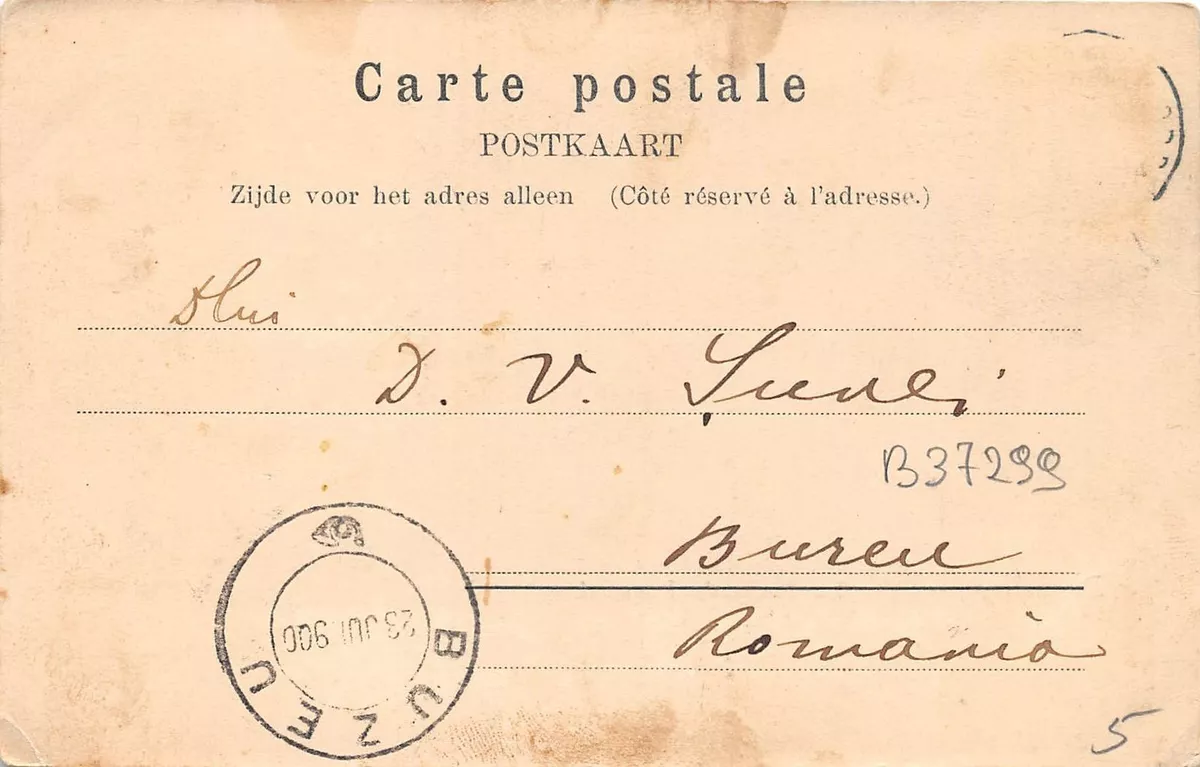 Carte postale
POSTKAART
Zijde voor het adres alleen (Côté réservé à l'adresse.)
Dlui
D. V.
B37299
Buzeu
Romania
BUZEU
23 JUI 900
5